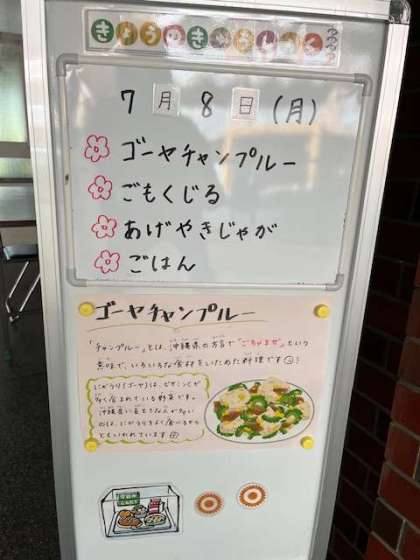 きょうのきゅうしょく
7月8日(月)
ゴーヤチャンプルー
ごもくじる
あげやきじゃが
ごはん
ゴーヤチャンプルー
「チャンプルー」とは、沖縄県の方言で"ごちゃまぜ"という
意味で、いろいろな食材をいためた料理です
にがうり(ゴーヤ)は、ビタミンCが
多く含まれている野菜です。
沖縄県に長生きな人が多い
のは、にがうりをよく食べるから
ともいわれています